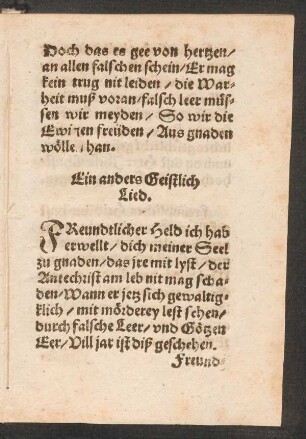 Doch das es gee von hertzen/
an allen falschen schein/Er mag
kein trug nit leiden/die War-
heit muß voran/falsch leer müs-
sen wir meyden/So wir die
Ewigen freüden/Aus gnaden
wöllen han.
Ein anders Geistlich
Lied.
FReundtlicher Held ich hab
erwellt/dich meiner Seel
zu gnaden/das jre mit lyst/der
Antechrist am leb nit mag scha-
den/Wann er jetz sich gewaltig-
klich/mit mörderey lest sehen/
durch falsche Leer/vnd Götzen
Eer/Vill jar ist diß geschehen.
Freund-